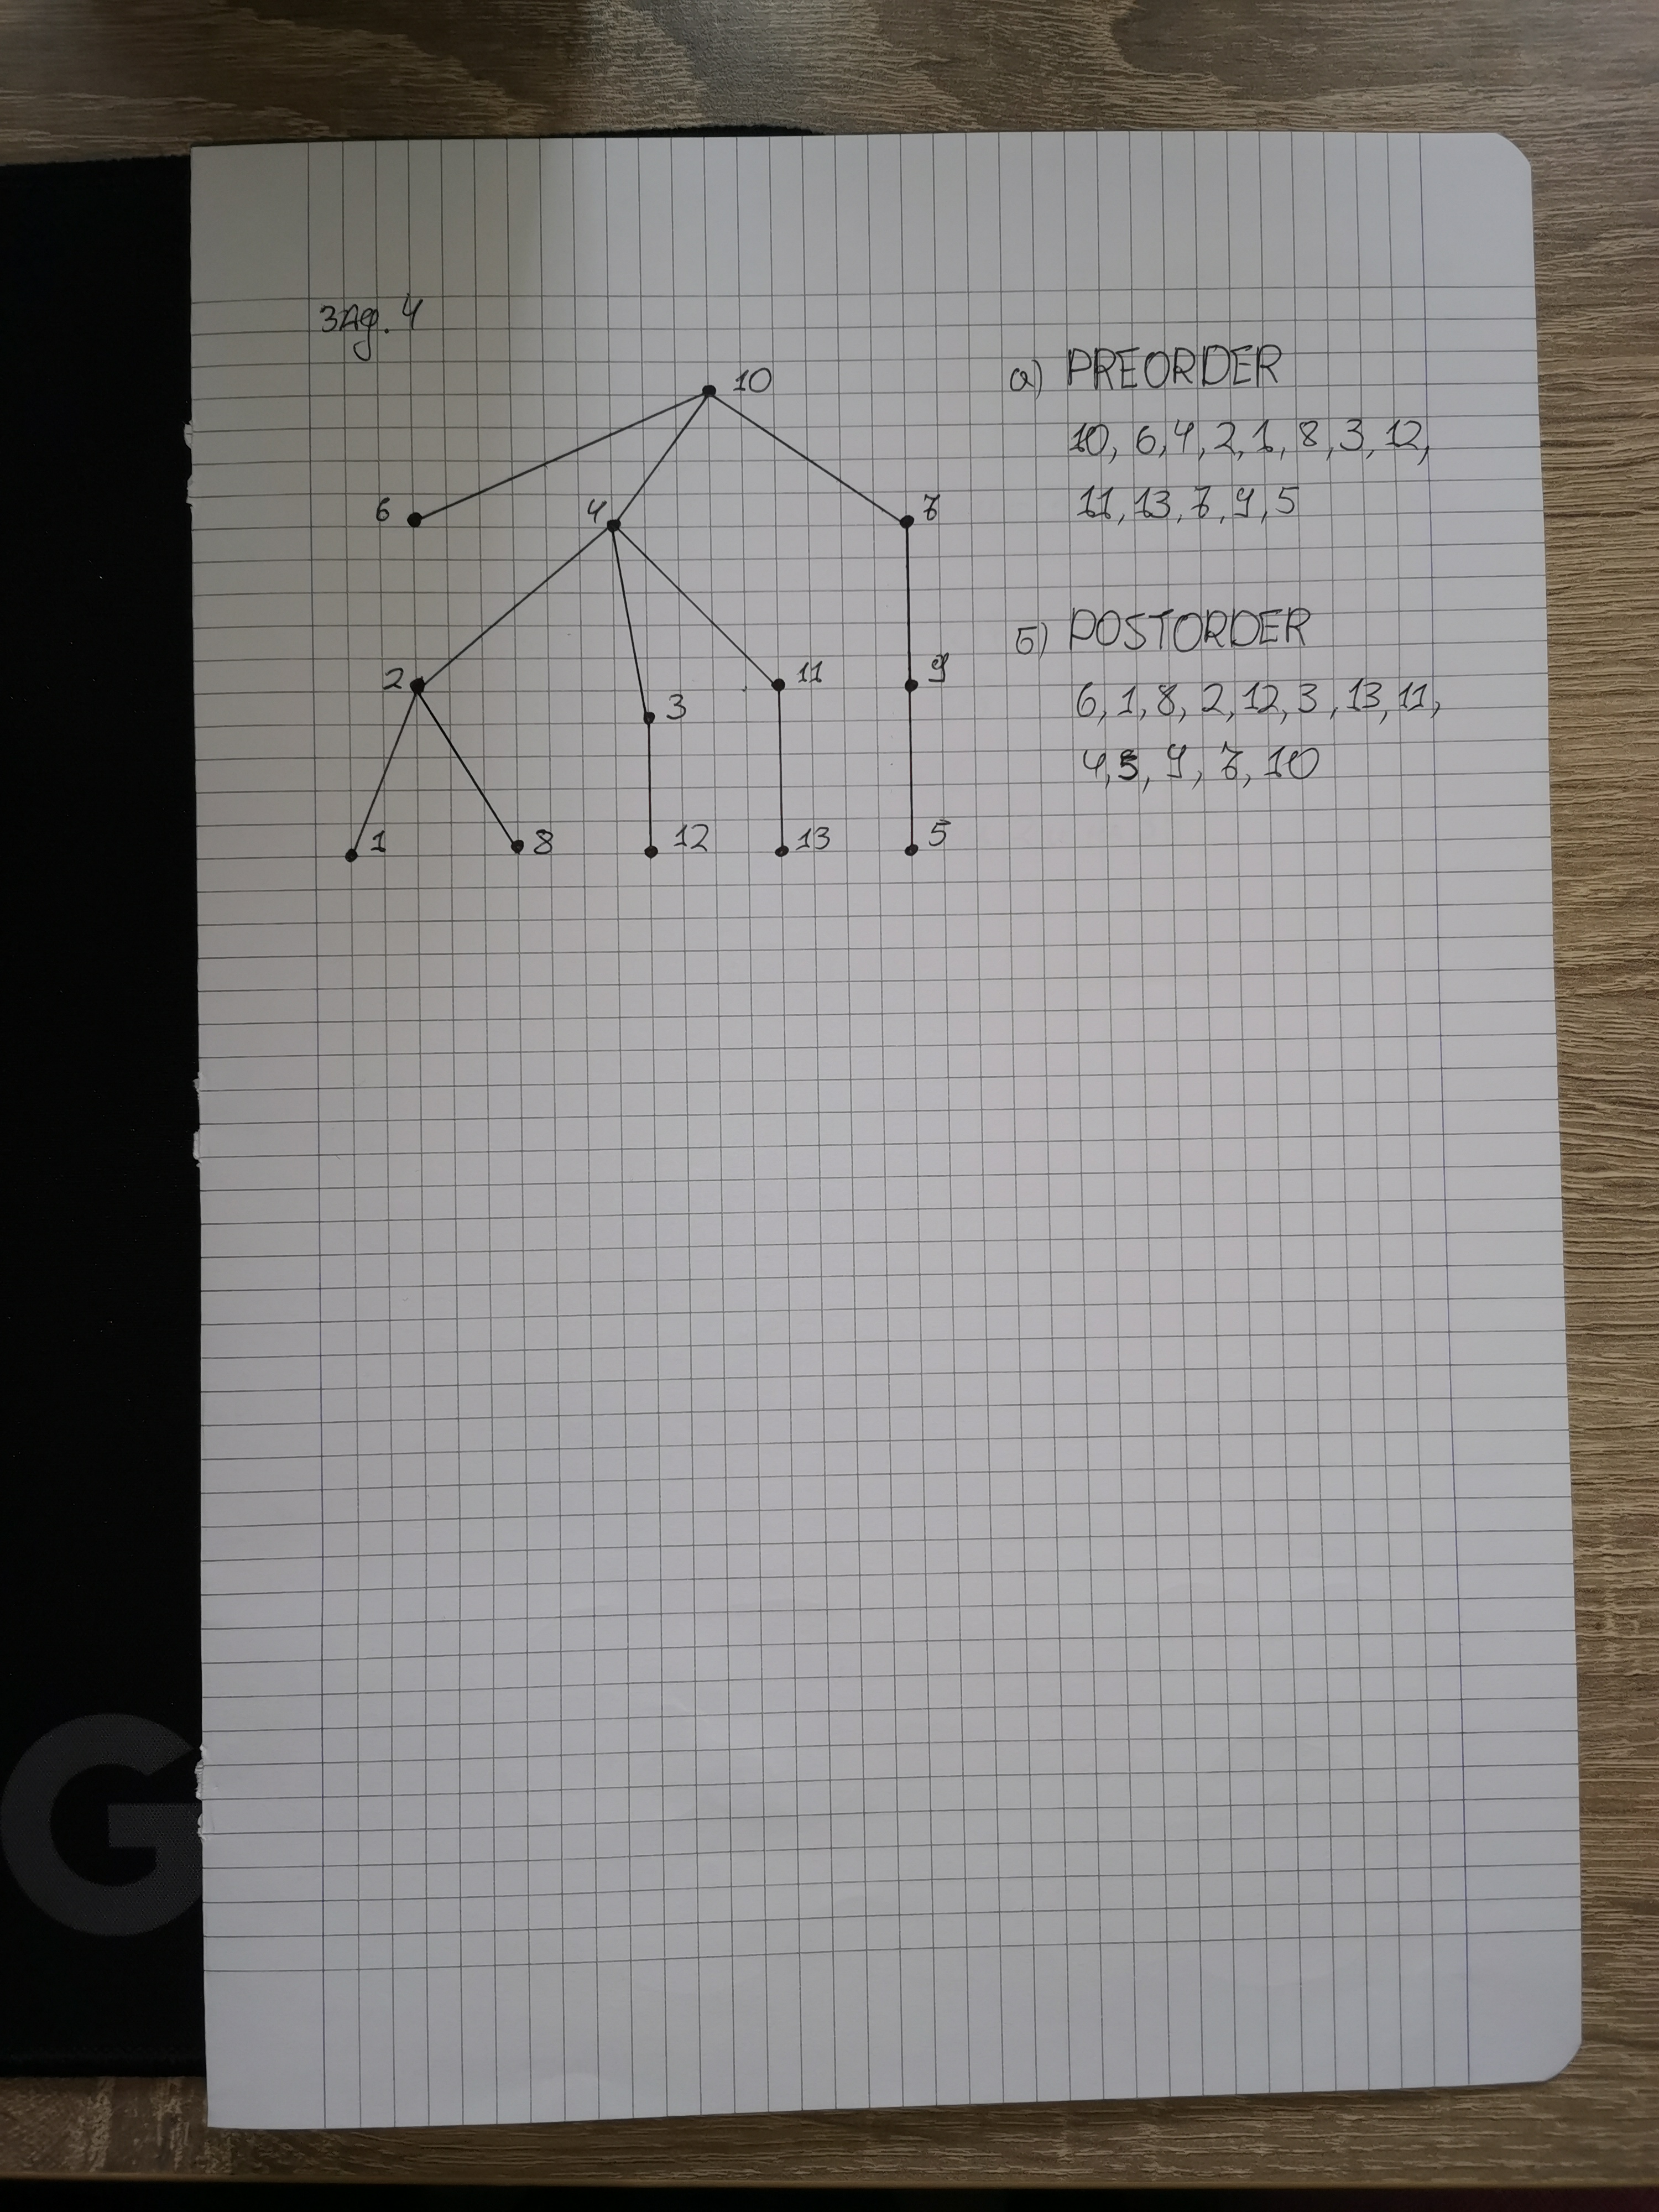 зад. 4
10
6
4
7
2
3
11
9
1
8
12
13
5
а) PREORDER
10, 6, 4, 2, 1, 8, 3, 12,
11, 13, 7, 9, 5
б) POSTORDER
6, 1, 8, 2, 12, 3, 13, 11,
4, 5, 9, 7, 10
G